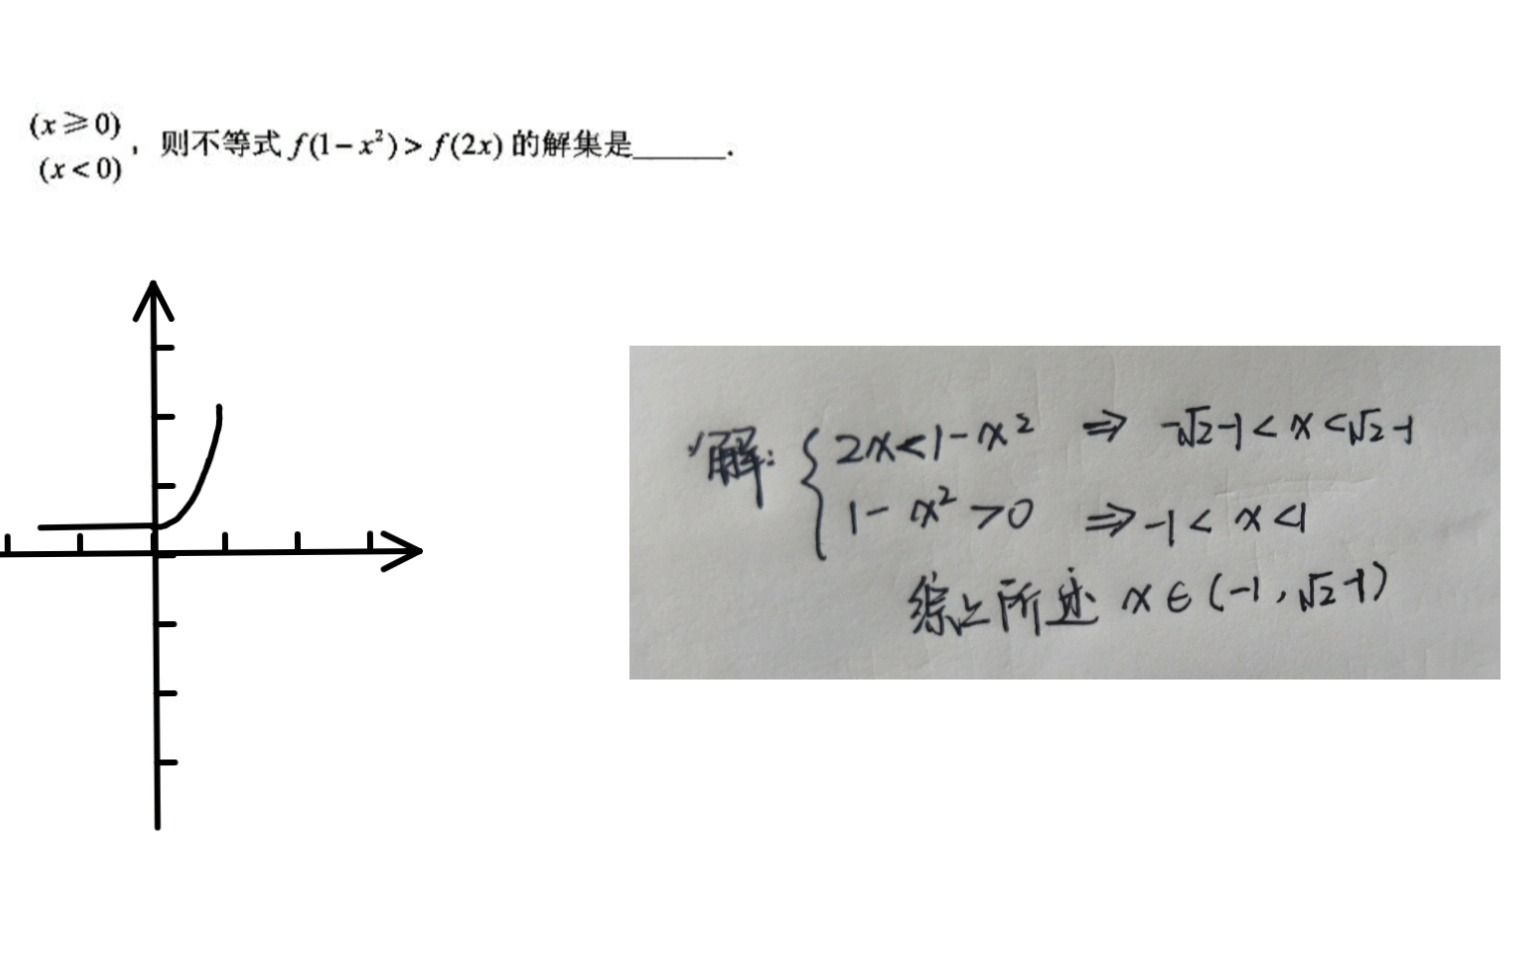 (x⩾0)
(x<0)
, 则不等式 f(1-x²)>f(2x) 的解集是______.
解: { 2x<1-x² ⇒ -√2-1<x<√2-1
1-x²>0 ⇒ -1<x<1
综上所述 x∈(-1,√2-1)